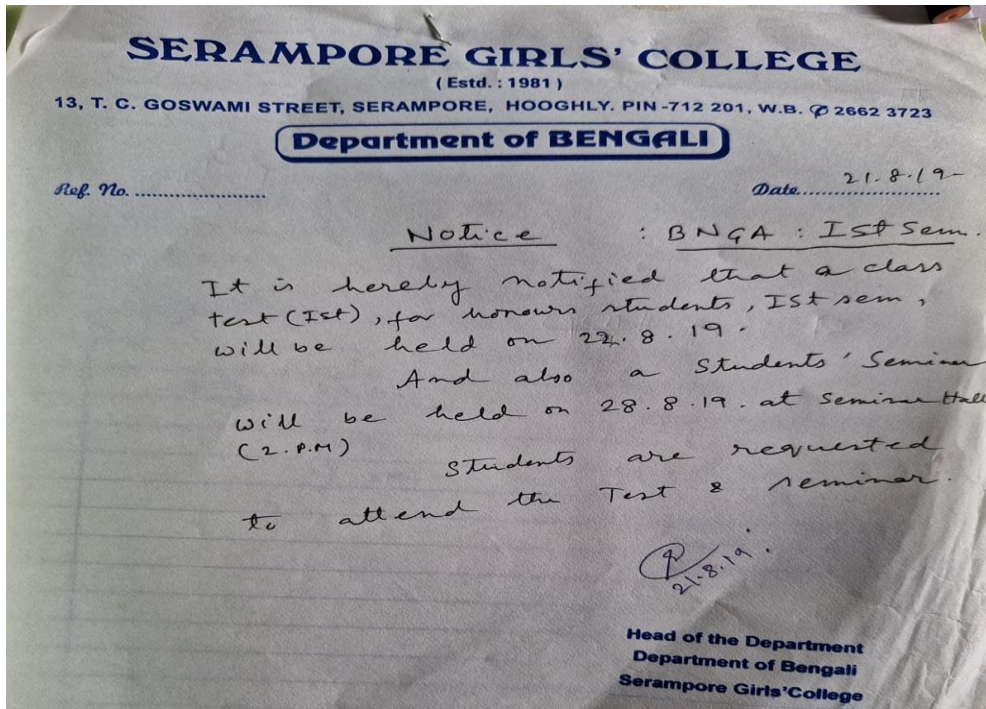 SERAMPORE GIRLS' COLLEGE
( Estd. : 1981 )
13, T. C. GOSWAMI STREET, SERAMPORE, HOOGHLY. PIN -712 201, W.B. ✆ 2662 3723
Department of BENGALI
Ref. No. ........................ Date........................ 21.8.19
Notice : BNGA : Ist Sem.
It is hereby notified that a class
test (Ist), for honours students, Ist sem,
will be held on 22.8.19.
And also a Students' Seminar
will be held on 28.8.19. at Seminar Hall
(2.P.M)
Students are requested
to attend the Test & seminar.
21.8.19.
Head of the Department
Department of Bengali
Serampore Girls'College